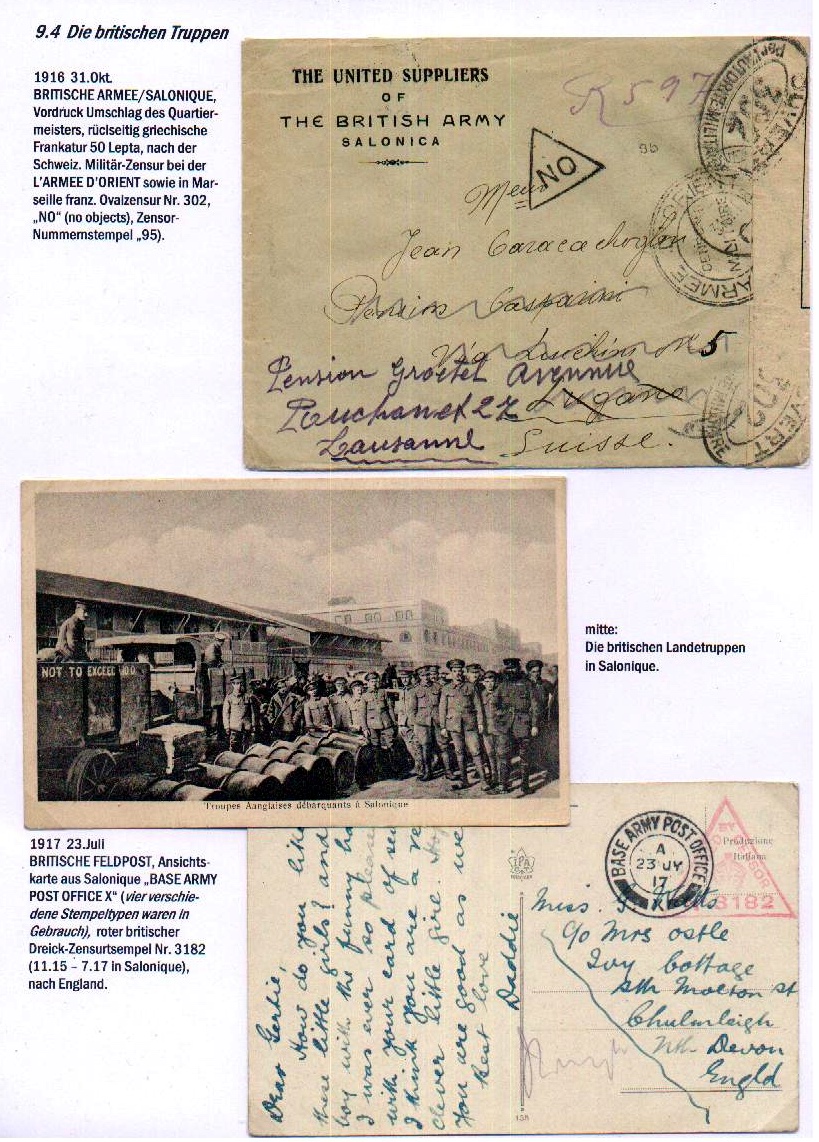 9.4 Die britischen Truppen
1916 31.Okt.
BRITISCHE ARMEE/SALONIQUE,
Vordruck Umschlag des Quartier-
meisters, rückseitig griechische
Frankatur 50 Lepta, nach der
Schweiz. Militär-Zensur bei der
L'ARMEE D'ORIENT sowie in Mar-
seille franz. Ovalzensur Nr. 302,
„NO“ (no objects), Zensor-
Nummernstempel „95).
THE UNITED SUPPLIERS
OF
THE BRITISH ARMY
SALONICA
R 597
NO
Jean
Via
5
Pension
27 Lugano
Lausanne Suisse.
OUVERT
302
ARMEE
NOT TO EXCEED
Troupes Aanglaises débarquants à Salonique
mitte:
Die britischen Landetruppen
in Salonique.
1917 23.Juli
BRITISCHE FELDPOST, Ansichts-
karte aus Salonique „BASE ARMY
POST OFFICE X“ (vier verschie-
dene Stempeltypen waren in
Gebrauch), roter britischer
Dreick-Zensurtsempel Nr. 3182
(11.15 – 7.17 in Salonique),
nach England.
Dear Gertie,
How do you like
these little girls? and
boy with the funny
I was ever so please
with your card of
I think you are a
clever little girl.
You are good as we
Best love
Daddie
158
BASE ARMY POST OFFICE
A
23 JY
17
X
Produzione
Italiana
3182
Miss
c/o Mrs Ostle
Ivy Cottage
Sth Molton St
Chulmleigh
Nth Devon
Engld